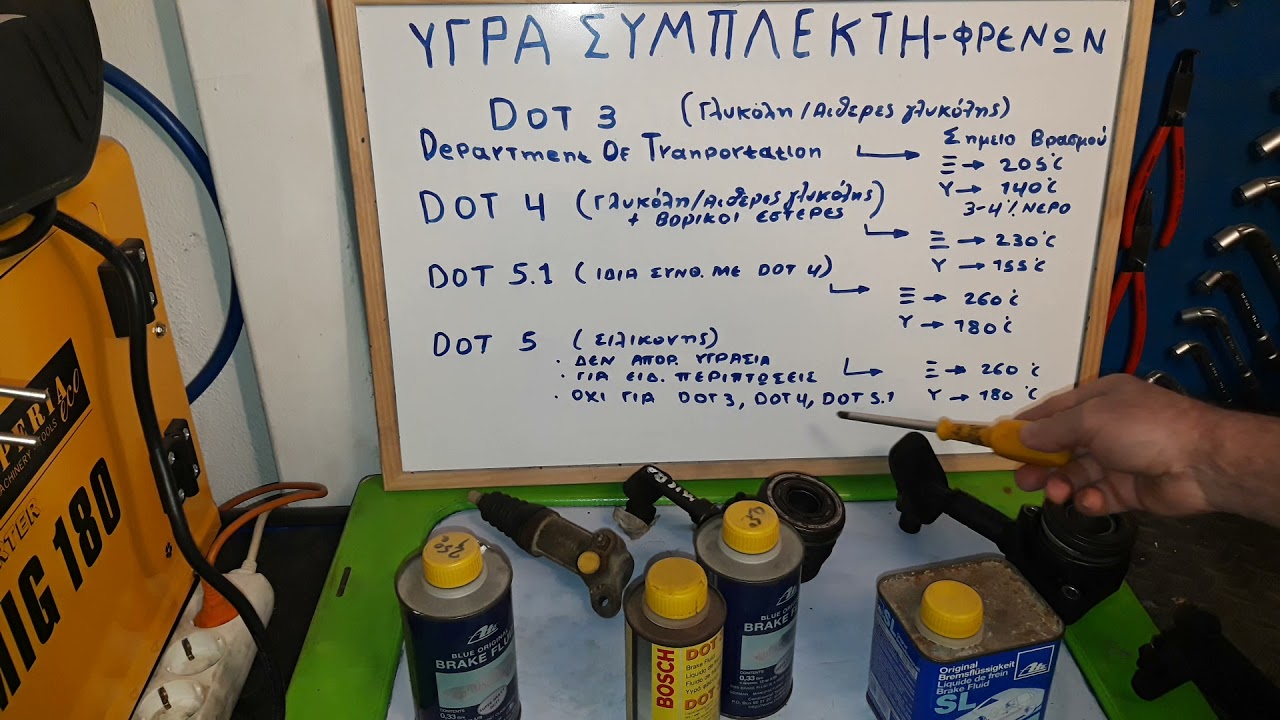 ΥΓΡΑ ΣΥΜΠΛΕΚΤΗ-ΦΡΕΝΩΝ
DOT 3 (Γλυκόλη/Αιθερες γλυκόλης)
Department Of Tranportation
Σημειο Βρασμού
Ξ → 205°C
Υ → 140°C
3-4% ΝΕΡΟ
DOT 4 (Γλυκόλη/Αιθερες γλυκόλης)
+ ΒΟΡΙΚΟΙ ΕΣΤΕΡΕΣ
Ξ → 230°C
Υ → 155°C
DOT 5.1 (ΙΔΙΑ ΣΥΝΘ. ΜΕ DOT 4)
Ξ → 260°C
Υ → 180°C
DOT 5 (Σιλικονης)
· ΔΕΝ ΑΠΟΡ. ΥΓΡΑΣΙΑ
· ΓΙΑ ΕΙΔ. ΠΕΡΙΠΤΩΣΕΙΣ
· ΟΧΙ ΓΙΑ DOT 3, DOT 4, DOT 5.1
Ξ → 260°C
Υ → 180°C
MIG 180
eco
MICRA
250
ATE
BLUE ORIGINAL
BRAKE FLUID
CONTENTS
0,33
BOSCH
DOT
Brake Fluid
DOT
ATE
BLUE ORIGINAL
BRAKE FLUID
CONTENTS
0,33
SL
Original
Bremsflüssigkeit
Liquide de frein
Brake Fluid
SL
ATE